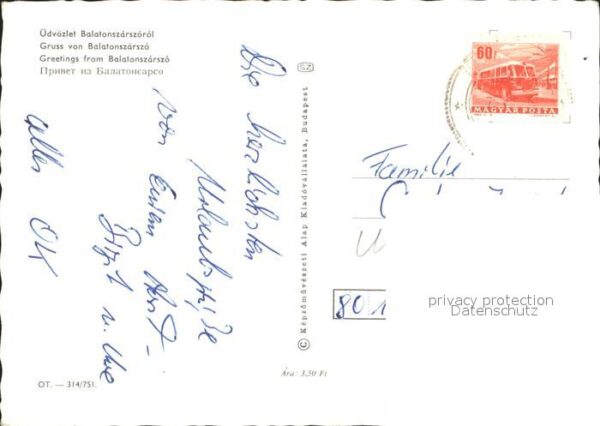 Üdvözlet Balatonszárszóról
Gruss von Balatonszárszó
Greetings from Balatonszárszó
Привет из Балатонсарсо
Die herzlichsten
Urlaubsgrüße
von Eurem
Birgit u. Uwe
alles OK
OT. — 314/751.
Ára: 3,50 Ft
© Képzőművészeti Alap Kiadóvállalata, Budapest
60
MAGYAR POSTA
Familie
801
privacy protection
Datenschutz